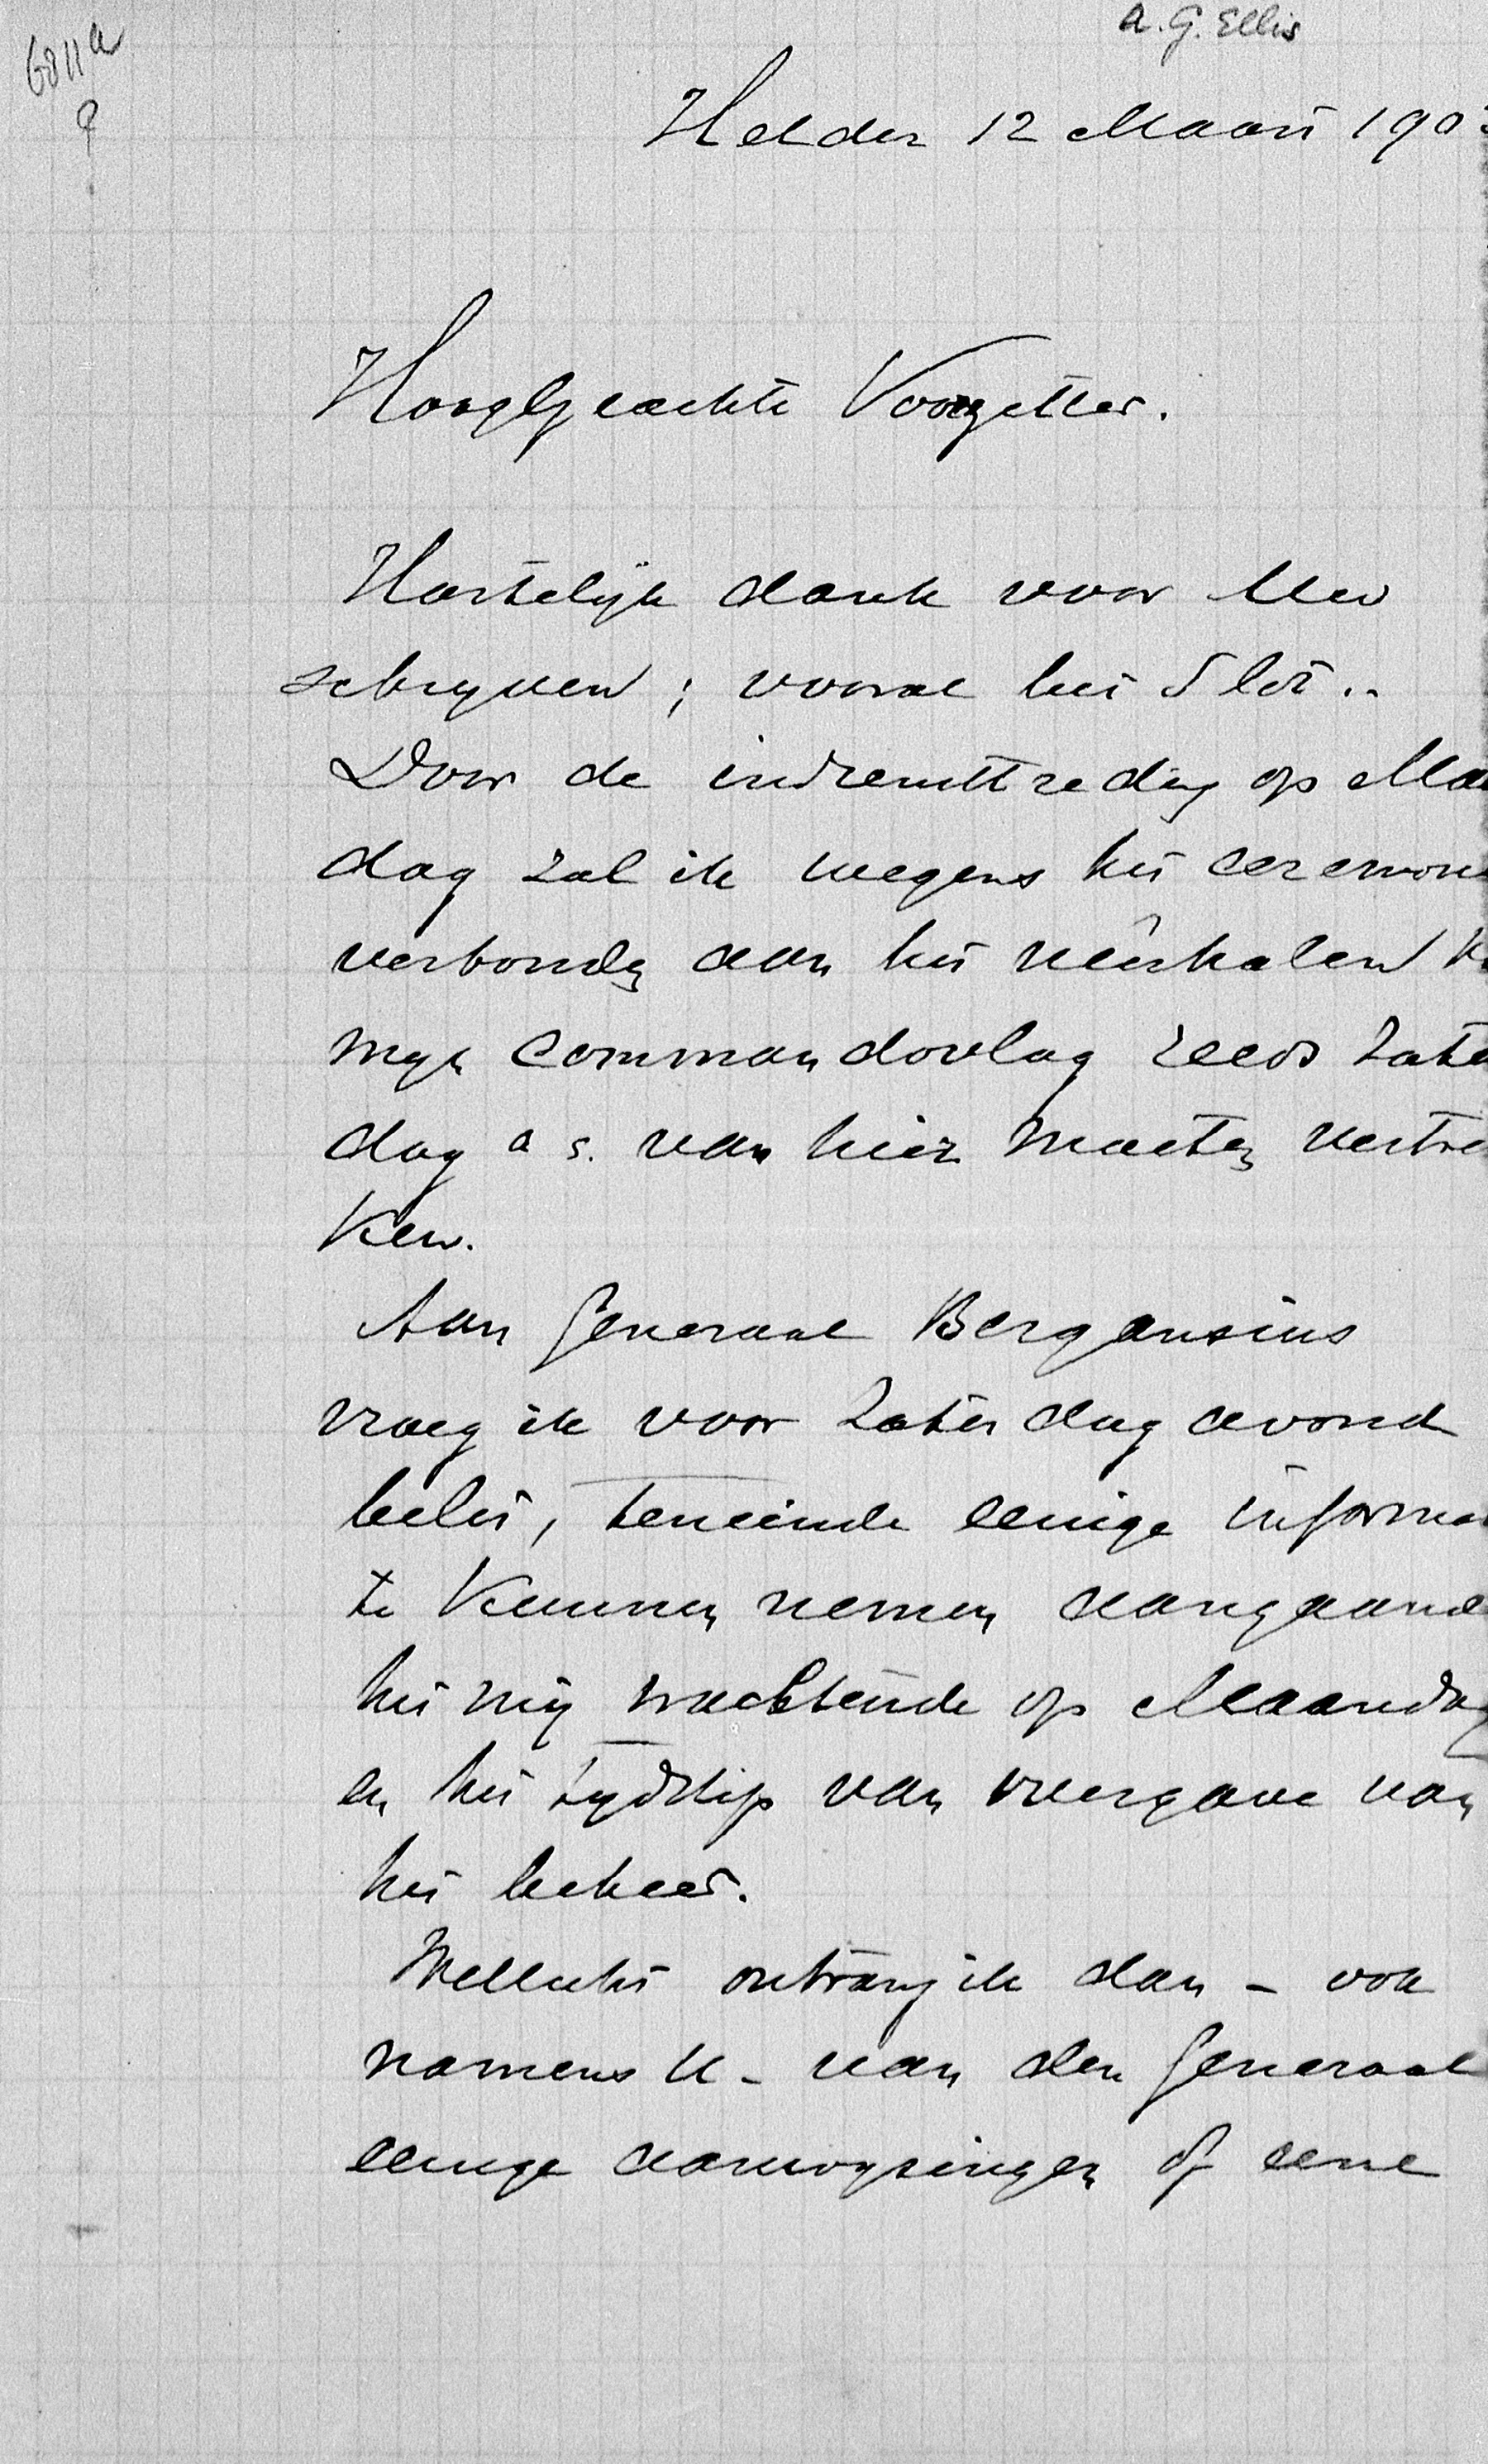 A. G. Ellis
6811a
?
Helder 12 Maart 190
HoogGeachte Voorzitter.
Hartelijk dank voor Uw
schrijven; vooral het slot..
Door de indiensttreding op Maan
dag zal ik wegens het ceremoni
verbonden aan het neêrhalen v
mijn commandovlag reeds Zater
dag a s. van hier moeten vertrek
ken.
Aan Generaal Bergansius
vroeg ik voor Zaterdag avond
belet, teneinde eenige informa
te kunnen nemen aangaande
het mij wachtende op Maandag
en het tijdstip van overgave van
het beheer.
Wellicht ontvang ik dan - ook
namens U - van den Generaal
eenige aanwijzingen of eene